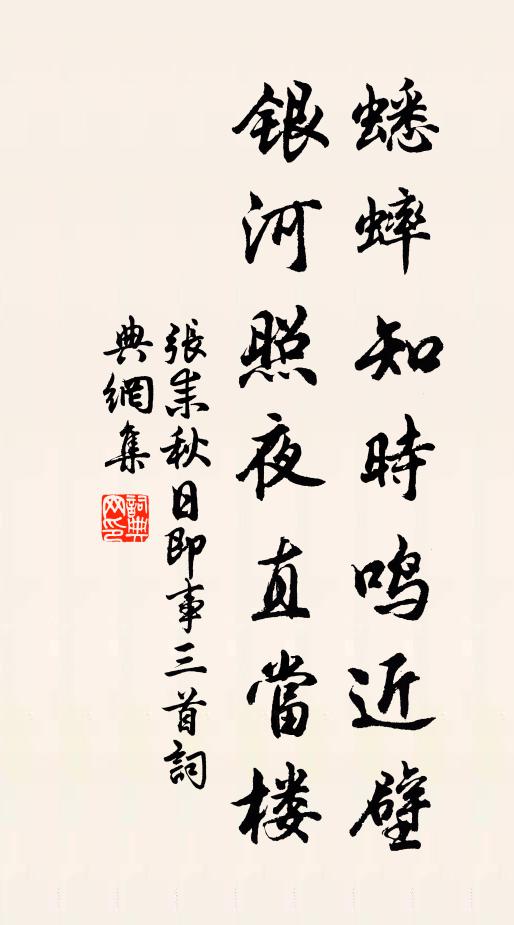 蟋蟀知時鳴近壁
銀河照夜直當楼
張耒秋日即事三首詞
典網集
詞典網印